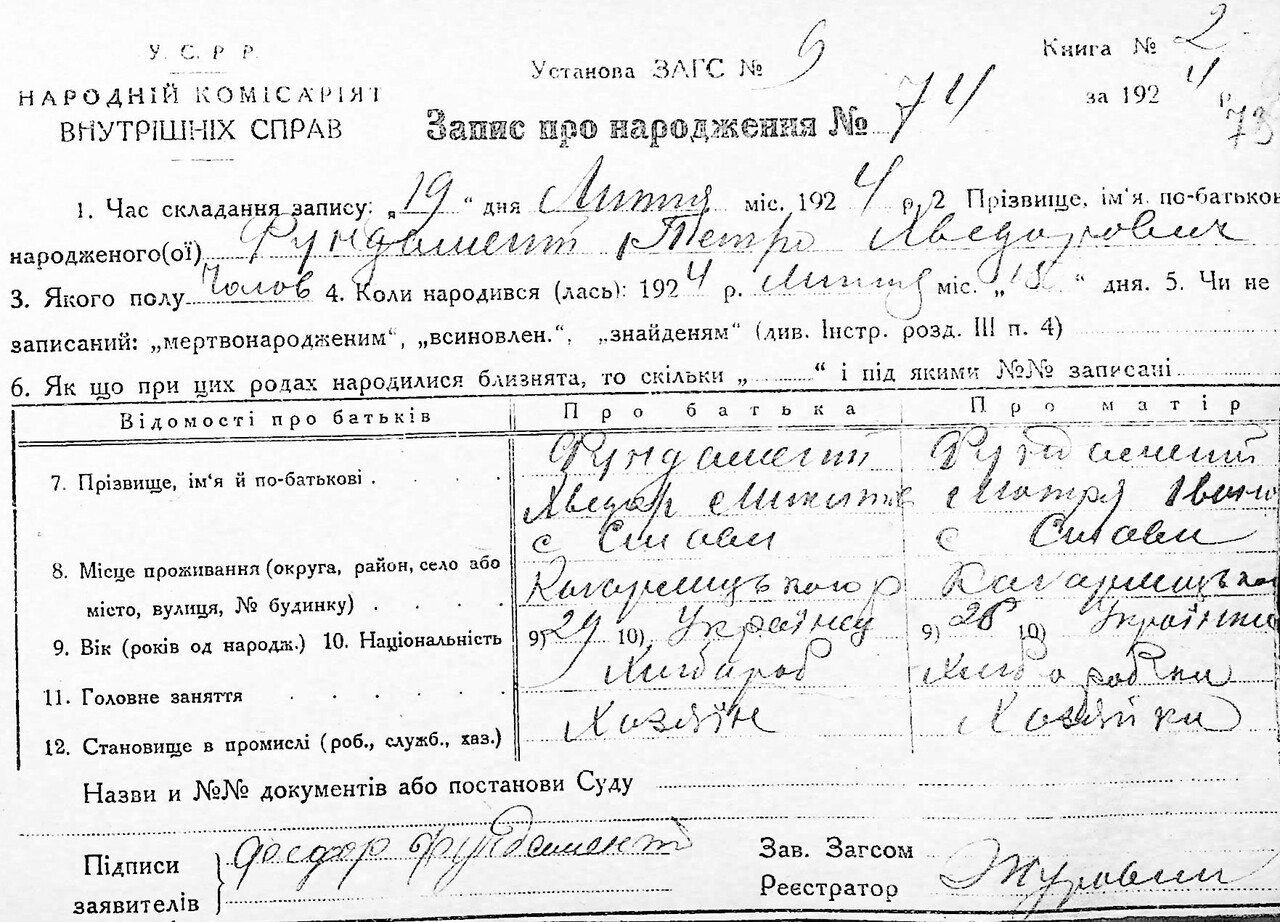 У. С. Р. Р.
НАРОДНІЙ КОМІСАРІЯТ
ВНУТРІШНІХ СПРАВ
Установа ЗАГС №
Книга № 2
за 1924 р.
73
Запис про народження № 74
1. Час складання запису: „19" дня Лютня міс. 1924 р. 2 Прізвище, ім'я по-батькові
народженого(ої) Фундамент Петро Хведорович
3. Якого полу Чолов 4. Коли народився (лась): 1924 р. Лютня міс. „18" дня. 5. Чи не
записаний: „мертвонародженим", „всиновлен.", „знайденям" (див. Інстр. розд. III п. 4)
6. Як що при цих родах народилися близнята, то скільки „......" і під якими №№ записані
Відомості про батьків Про батька Про матір
7. Прізвище, ім'я й по-батькові . . . . Фундамент Фундамент
Хведор Микитов Мотря Івано
с Стави с Стави
8. Місце проживання (округа, район, село або
місто, вулиця, № будинку) . . . . Кагарлицького р Кагарлицько
9. Вік (років од народж.) 10. Національність 9) 29 10) Українец 9) 28 10) Українка
11. Головне заняття . . . . . Хлібороб Хліборобка
12. Становище в промислі (роб., служб., хаз.) Хозяїн Хозяйка
Назви и №№ документів або постанови Суду
Підписи
заявителів
Фосдор Фундамент
Зав. Загсом
Реєстратор